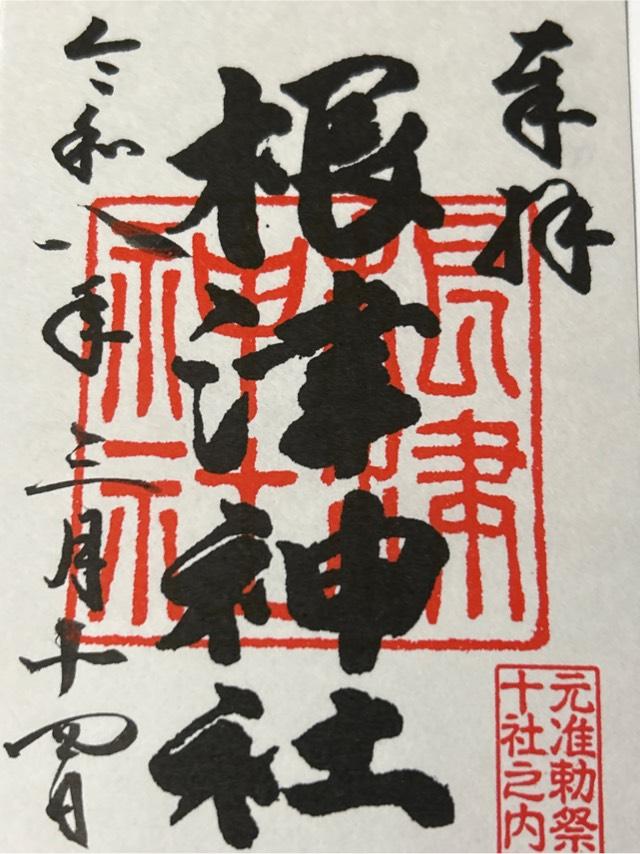 奉拝
根津神社
令和八年三月十四日
根津
神社
元准勅祭
十社之内